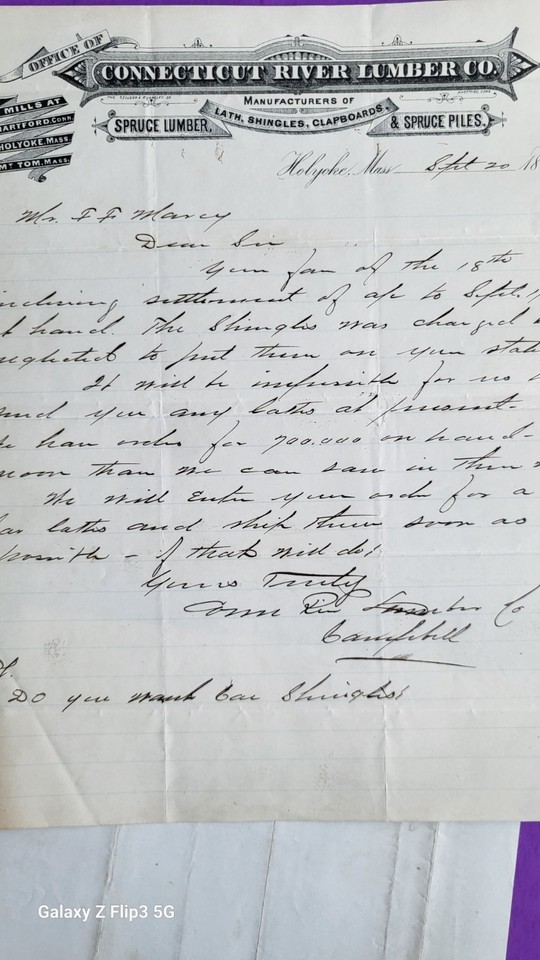 OFFICE OF
CONNECTICUT RIVER LUMBER CO.
MANUFACTURERS OF
LATH, SHINGLES, CLAPBOARDS,
SPRUCE LUMBER, & SPRUCE PILES.
MILLS AT
HARTFORD, CONN.
HOLYOKE, MASS.
MT TOM, MASS.
Holyoke, Mass Sept 20 18
Mr. F F Marcy
Dear Sir
Your fav of the 18th
inclosing settlement of a/c to Sept. 1
at hand. The Shingles was charged
neglected to put them on your stat
It will be impossible for us
send you any laths at present.
We have orders for 700.000 on hand-
more than we can saw in three
We will Enter your order for a
car laths and ship them soon as
possible - if that will do?
Yours Truly
Conn Riv Lumber Co
Campbell
Do you want Car Shingles?
Galaxy Z Flip3 5G